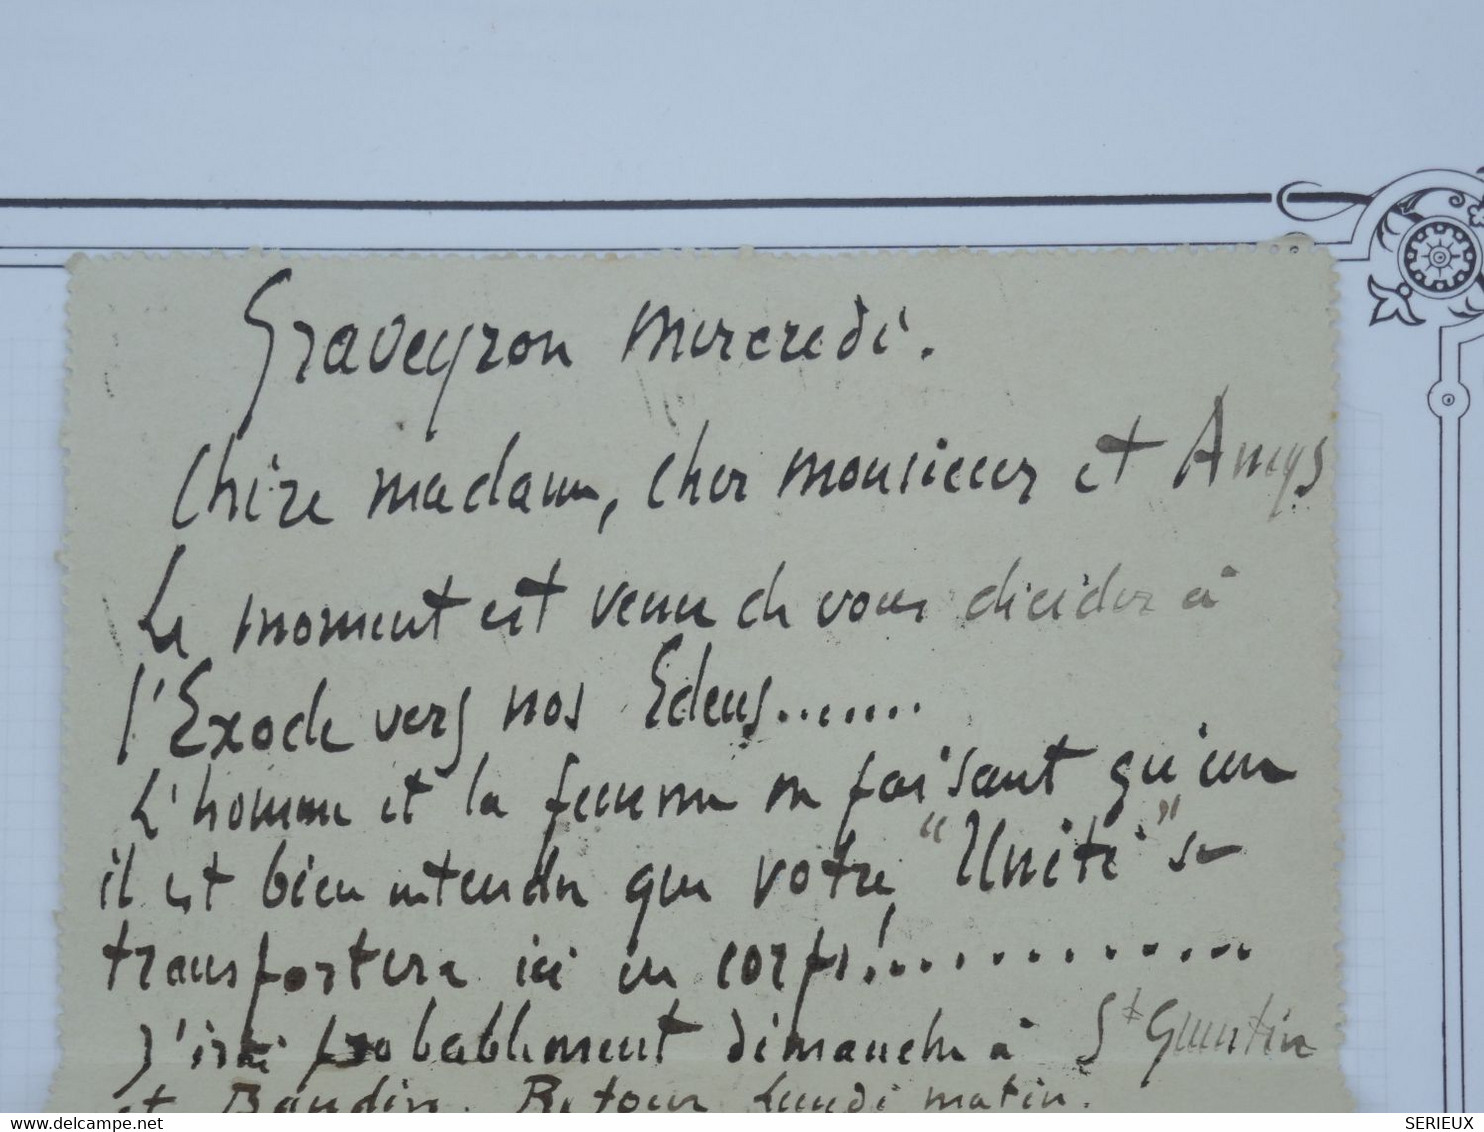 Graveyron mercredi.
Chère madame, cher monsieur et Amys
Le moment est venu de vous décider à
l'Exode vers nos Edens.......
L'homme et la femme ne faisant qu'un
il est bien entendu que votre "Unité" se
transportera ici en corps!............
J'irai probablement dimanche à St Quentin
et Baudin. Retour Lundi matin.
www.delcampe.net
SERIEUX